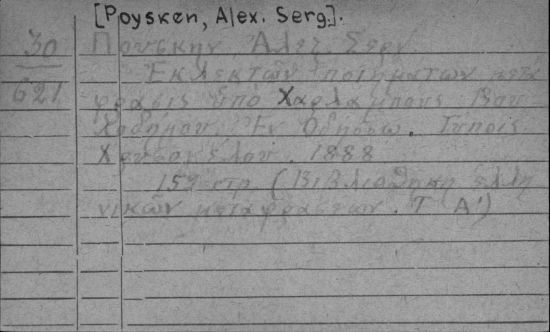 [Poysken, Alex. Serg.].
30 Πουσκην, Αλεξ. Σεργ.
Ἐκλεκτῶν ποιημάτων μετά
621 φρασις ὑπὸ Χαραλάμπους Βου
χοδήμου. Ἐν Ὀδησσῳ. Τύποις
Χρυσογέλου. 1888
152 στρ. (Βιβλιοθηκη ἑλλη
νικῶν μεταφράσεων. Τ. Α')